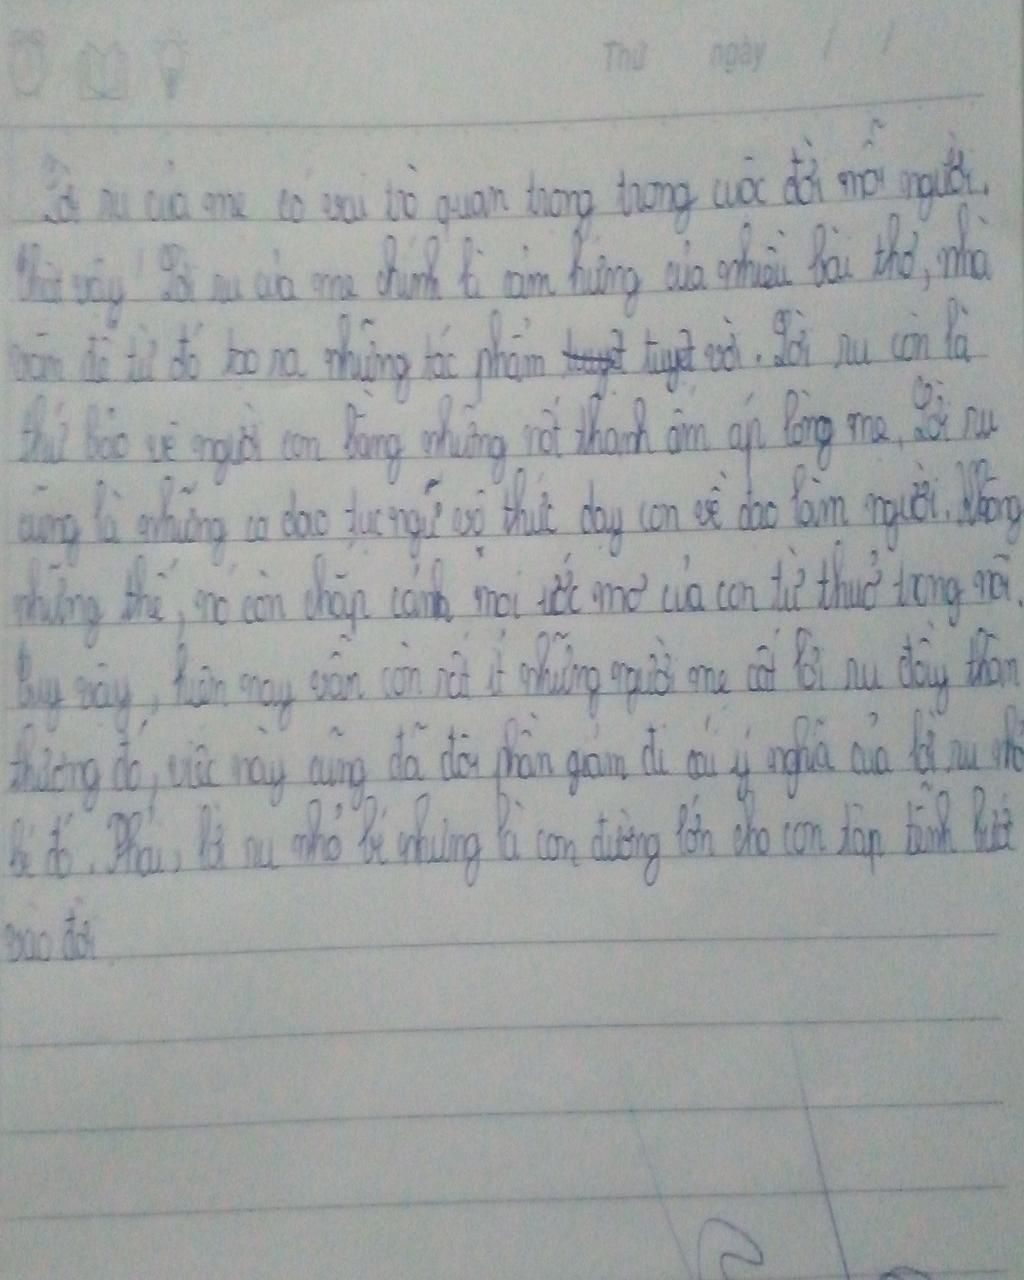 Thứ ngày / /
Lời ru của mẹ có vai trò quan trọng trong cuộc đời mỗi người.
Thật vậy! Lời ru của mẹ chính là cảm hứng của nhiều bài thơ, nhà
văn để từ đó tạo ra những tác phẩm tuyệt vời. Lời ru còn là
thứ bảo vệ người con bằng những nốt thanh âm áp lòng mẹ, Lời ru
cũng là những ca dao tục ngữ vô thức dạy con về đạo làm người. Không
những thế, nó còn chắp cánh mọi ước mơ của con từ thuở trong nôi.
Tuy vậy, hiện nay vẫn còn rất ít những người mẹ cất lời ru đầy thân
thương đó, việc này cũng đã đôi phần giảm đi cái ý nghĩa của lời ru nhỏ
bé đó. Phải, lời ru nhỏ bé nhưng là con đường lớn cho con tập tễnh bước
vào đời